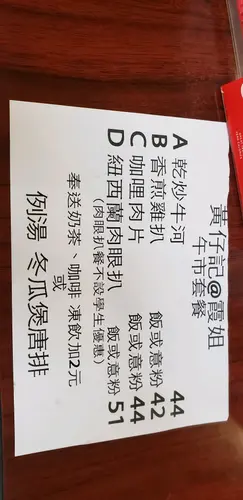 黃仔記@霞姐
午市套餐
A 乾炒牛河 44
B 香煎雞扒 飯或意粉 42
C 咖哩肉片 飯或意粉 44
D 紐西蘭肉眼扒 飯或意粉 51
(肉眼扒餐不設學生優惠)
奉送奶茶、咖啡 凍飲加2元
或
例湯 冬瓜煲唐排